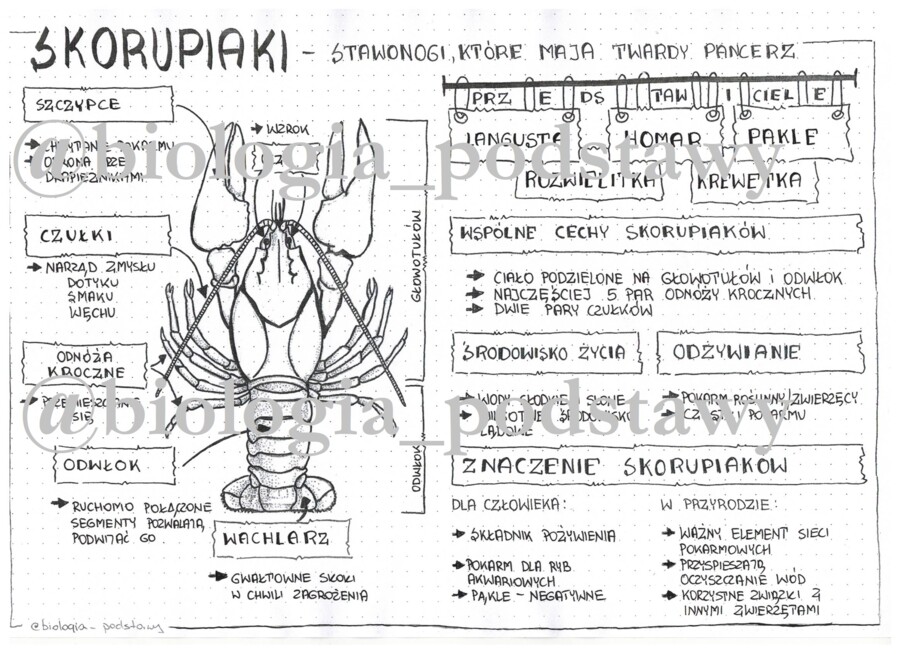 SKORUPIAKI – STAWONOGI, KTÓRE MAJĄ TWARDY PANCERZ
SZCZYPCE
→ CHWYTANIE POKARMU
→ OBRONA PRZED
DRAPIEŻNIKAMI
→ WZROK
CZUŁKI
→ NARZĄD ZMYSŁU
DOTYKU
SMAKU
WĘCHU
ODNÓŻA
KROCZNE
→ PRZEMIESZCZANIE
SIĘ
ODWŁOK
→ RUCHOMO POŁĄCZONE
SEGMENTY POZWALAJĄ
PODWIJAĆ GO
WACHLARZ
→ GWAŁTOWNE SKOKI
W CHWILI ZAGROŻENIA
GŁOWOTUŁÓW
ODWŁOK
PRZEDSTAWICIELE
LANGUSTA
HOMAR
PĄKLE
ROZWIELITKA
KREWETKA
WSPÓLNE CECHY SKORUPIAKÓW
→ CIAŁO PODZIELONE NA GŁOWOTUŁÓW i ODWŁOK
→ NAJCZĘŚCIEJ 5 PAR ODNÓŻY KROCZNYCH
→ DWIE PARY CZUŁKÓW
ŚRODOWISKO ŻYCIA
→ WODY SŁODKIE I SŁONE
→ WILGOTNE ŚRODOWISKO
LĄDOWE
ODŻYWIANIE
→ POKARM ROŚLINNY/ZWIERZĘCY
→ CZĄSTKI POKARMU
ZNACZENIE SKORUPIAKÓW
DLA CZŁOWIEKA:
→ SKŁADNIK POŻYWIENIA
→ POKARM DLA RYB
AKWARIOWYCH
→ PĄKLE – NEGATYWNE
W PRZYRODZIE:
→ WAŻNY ELEMENT SIECI
POKARMOWYCH
→ PRZYSPIESZAJĄ
OCZYSZCZANIE WÓD
→ KORZYSTNE ZWIĄZKI Z
INNYMI ZWIERZĘTAMI
@biologia_podstawy
@biologia_podstawy
@biologia_podstawy